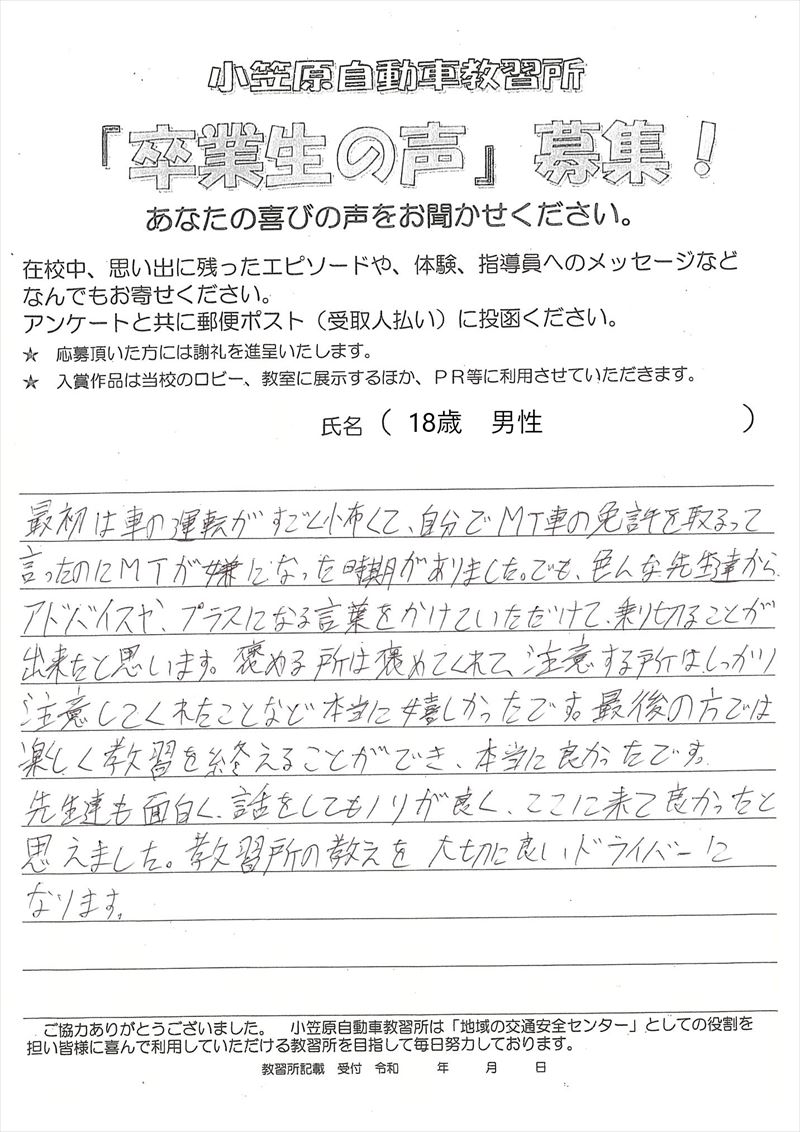 小笠原自動車教習所
『卒業生の声』募集！
あなたの喜びの声をお聞かせください。
在校中、思い出に残ったエピソードや、体験、指導員へのメッセージなど
なんでもお寄せください。
アンケートと共に郵便ポスト（受取人払い）に投函ください。
★ 応募頂いた方には謝礼を進呈いたします。
★ 入賞作品は当校のロビー、教室に展示するほか、ＰＲ等に利用させていただきます。
氏名（ 18歳 男性 ）
最初は車の運転がすごく怖くて、自分でMT車の免許を取るって
言ったのにMTが嫌になった時期がありました。でも、色んな先生達から
アドバイスや、プラスになる言葉をかけていただけて、乗り切ることが
出来たと思います。褒める所は褒めてくれて、注意する所はしっかり
注意してくれたことなど本当に嬉しかったです。最後の方では
楽しく教習を終えることができ、本当に良かったです。
先生達も面白く、話をしてもノリが良く、ここに来て良かったと
思えました。教習所の教えを大切に良いドライバーに
なります。
ご協力ありがとうございました。 小笠原自動車教習所は「地域の交通安全センター」としての役割を
担い皆様に喜んで利用していただける教習所を目指して毎日努力しております。
教習所記載 受付 令和 年 月 日